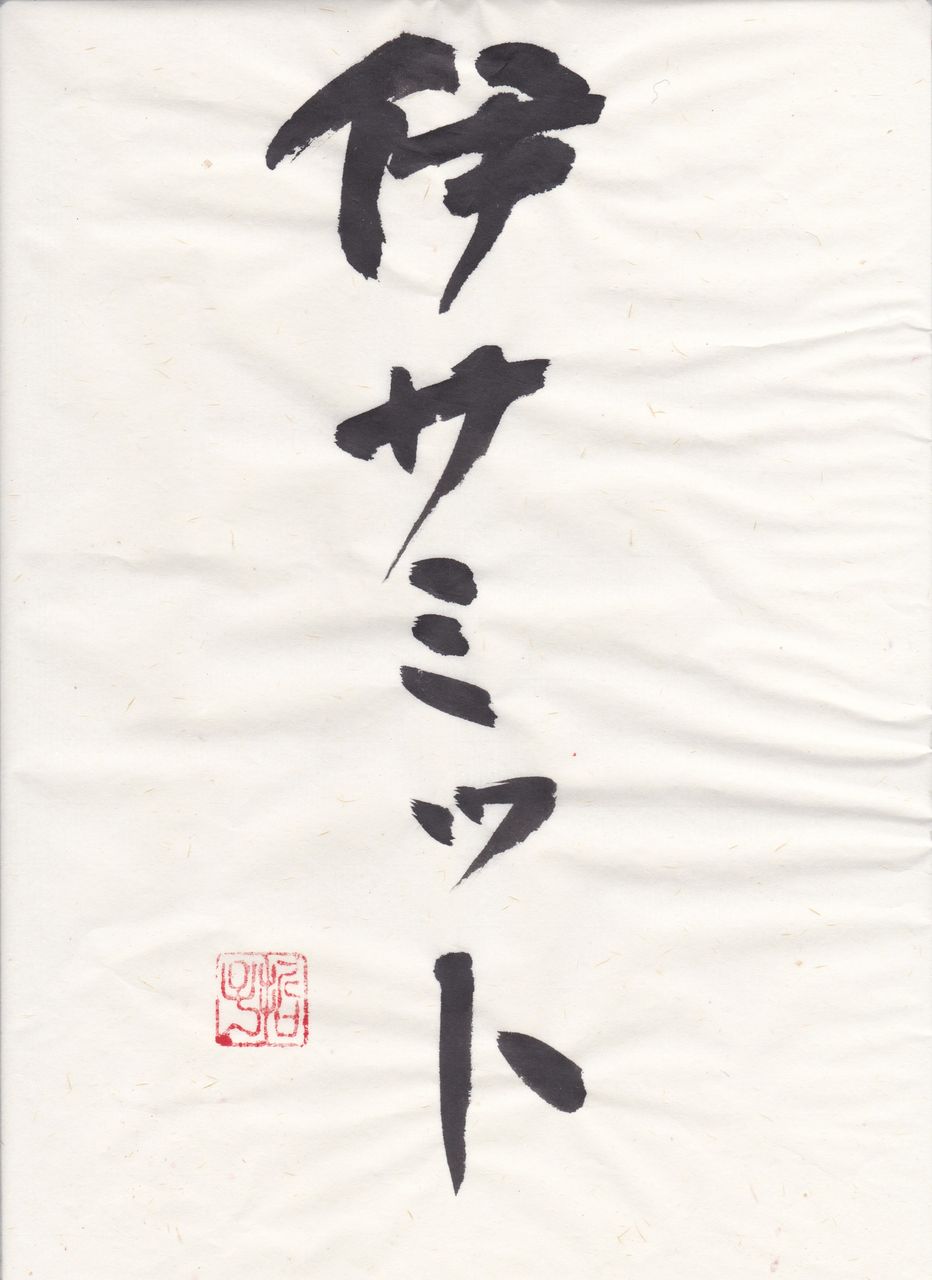 伊サミット